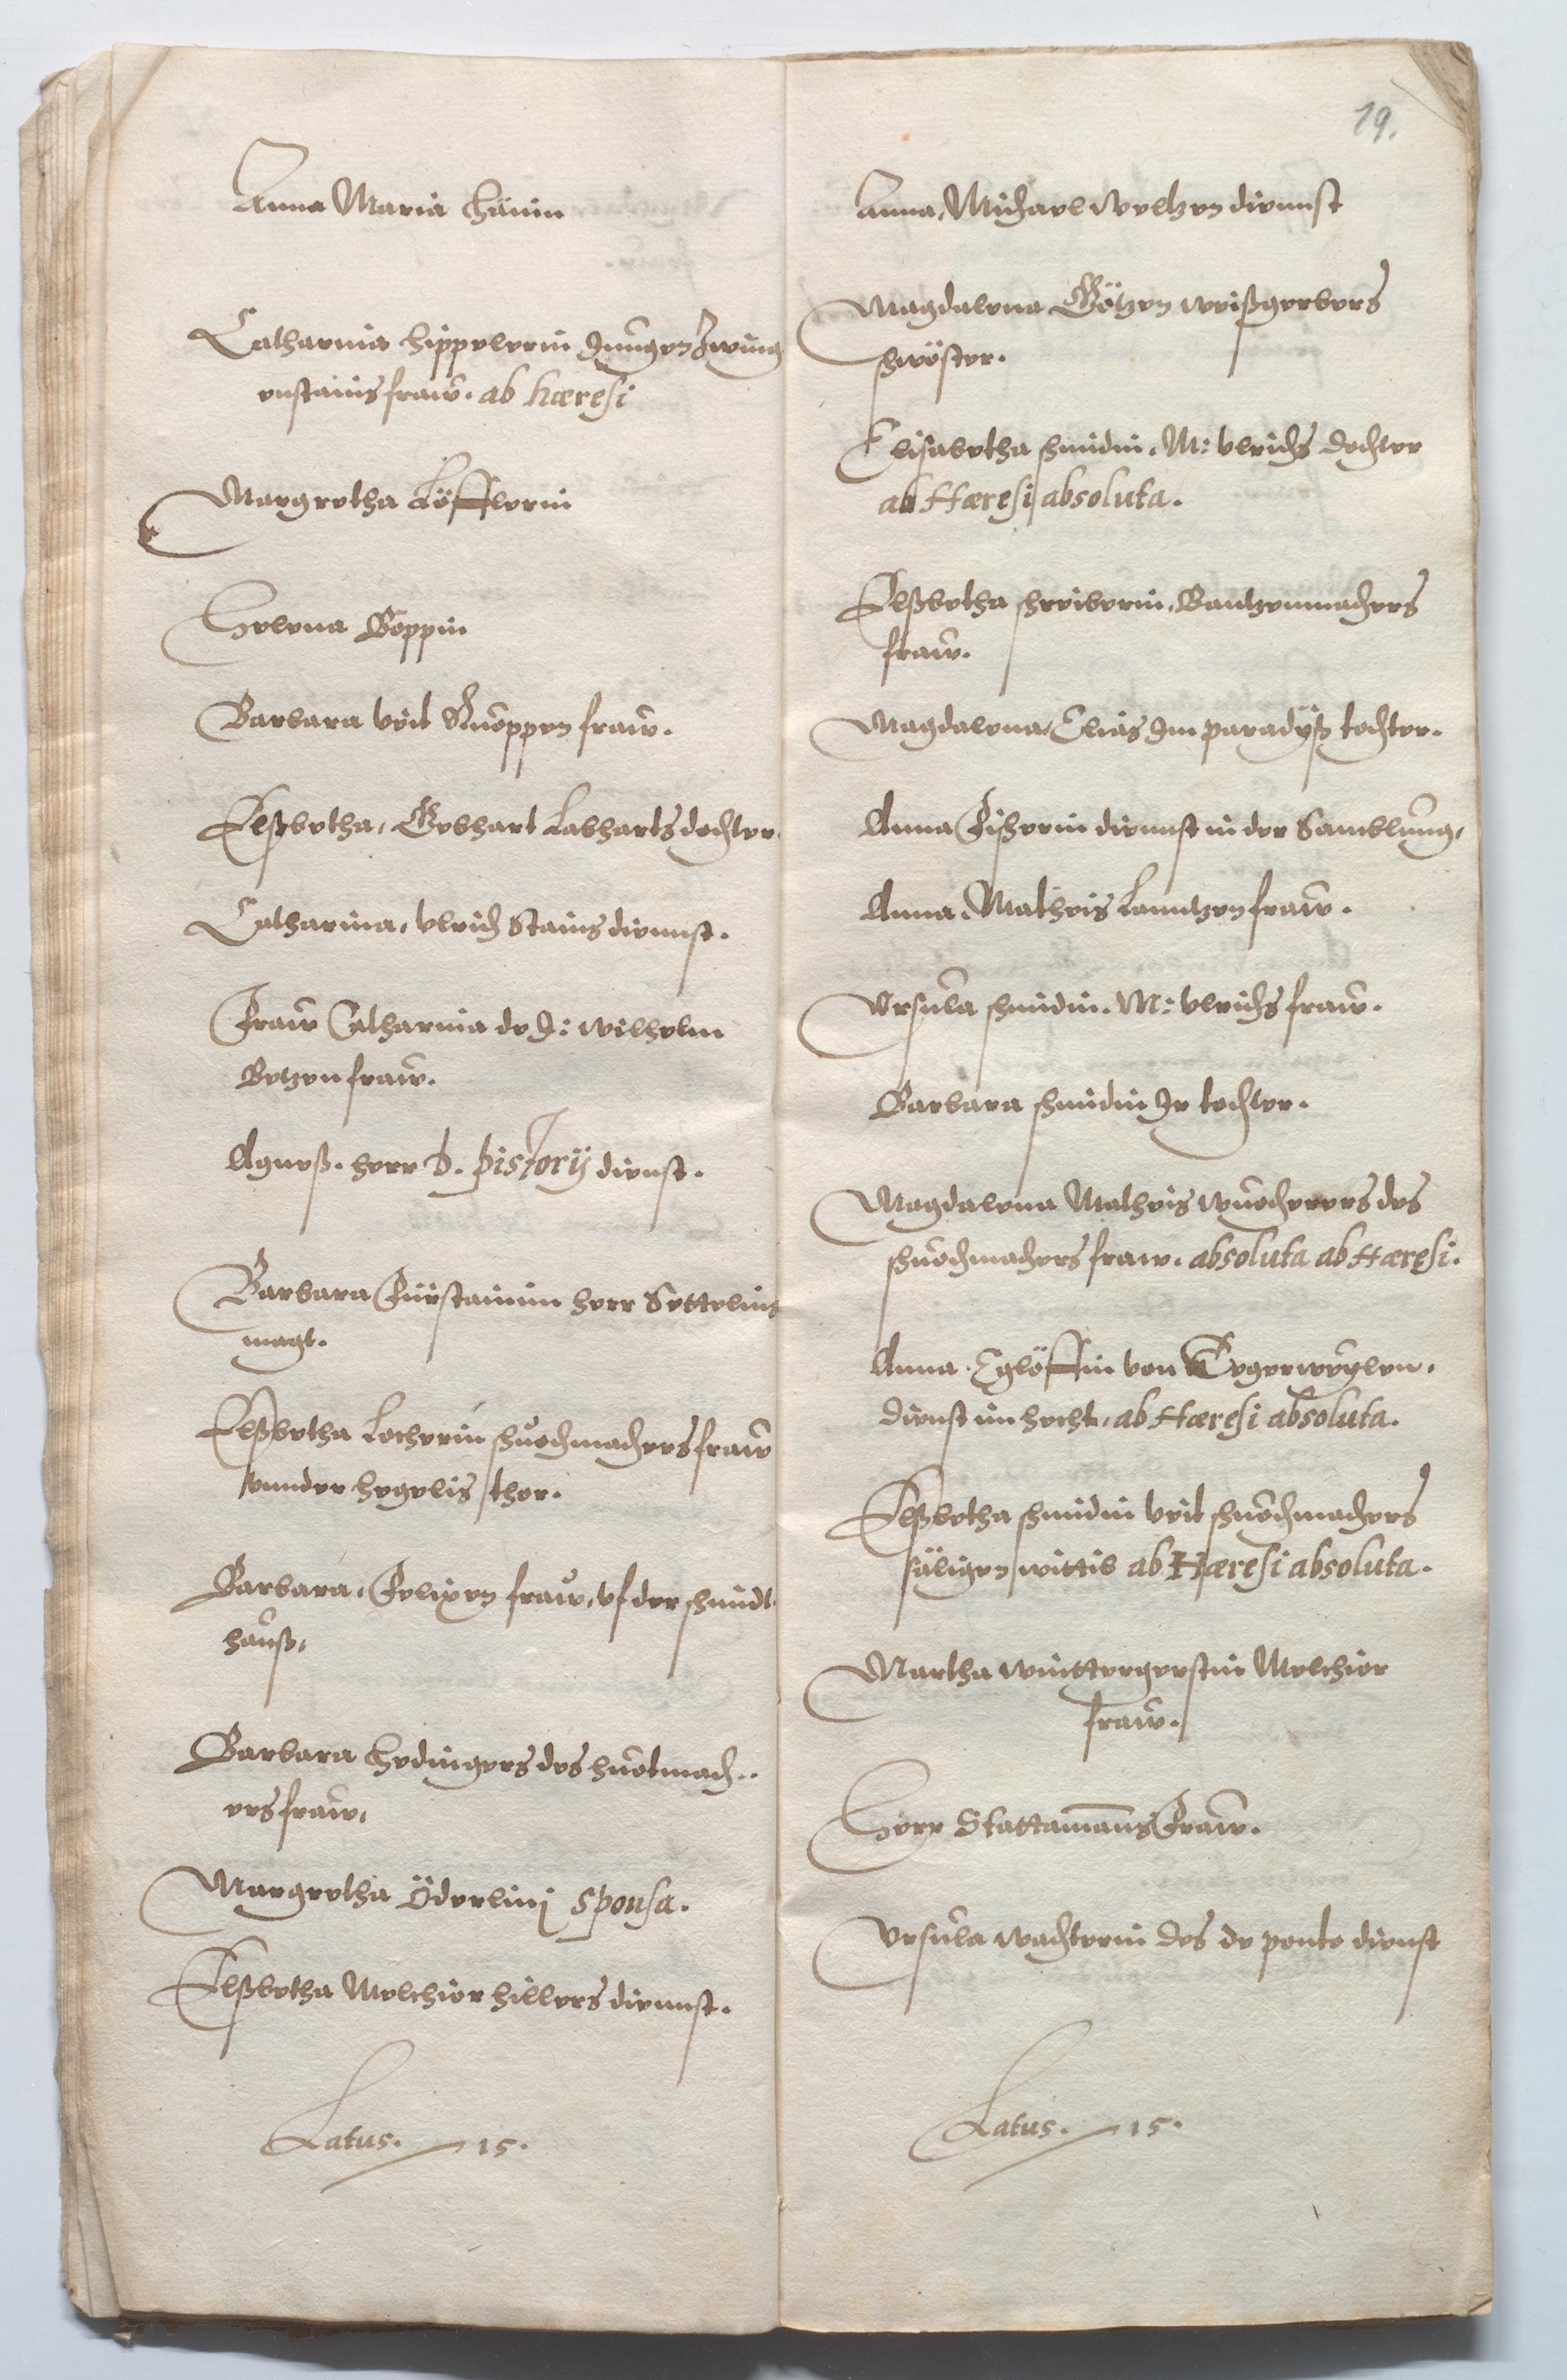 Anna Maria Hänin
Catharina Hippelerin Jungen Zwing
enstains fraw. ab hæresi
Margretha Löfflerin
Helena Boppin
Barbara Veit Knöppen fraw.
Elßbetha, Gebhart Labharts dochter.
Catharina, Ulrich Stains diennst.
Fraw Catharina de J: Wilhelm
Betzen fraw.
Agneß. herr D. pistorij dienst.
Barbara Fürstainin herr Settelins
magt.
Elßbetha Locherin shuochmachers fraw
vnnder hegelis thor.
Barbara, Felixen fraw, vf der shmidt
hauß,
Barbara Hedingers des huotmach..
ers fraw,
Margretha Öderlinj sponsa.
Elßbetha Melchior hillers diennst.
Latus. 15.
19.
Anna, Michael Weltzen diennst
Magdalena Götzen weißgerbers
shwöster.
Elisabetha shmidin, M: Ulrichs dochter
ab Hæresi absoluta.
Elßbetha shreiberin, Bantzenmachers
fraw.
Magdalena, Elias Im paradyß tochter.
Anna Fisherin diennst in der Samblung,
Anna, Matheis Lanntzen fraw.
Vrsula shmidin. M: Ulrichs fraw.
Barbara shmidin Ir tochter.
Magdalena Matheis wuocherers des
shuochmachers fraw. absoluta ab Hæresi.
Anna. Eglöffin von Tegerweylen.
dienst im hecht, ab Hæresi absoluta.
Elßbetha shmidin Veit shuochmachers
säligen wittib ab Hæresi absoluta.
Martha Winttergerstin Melchior
fraw.
Herr Stattamans Fraw.
Vrsula wachterin des de ponte dienst
Latus. 15.